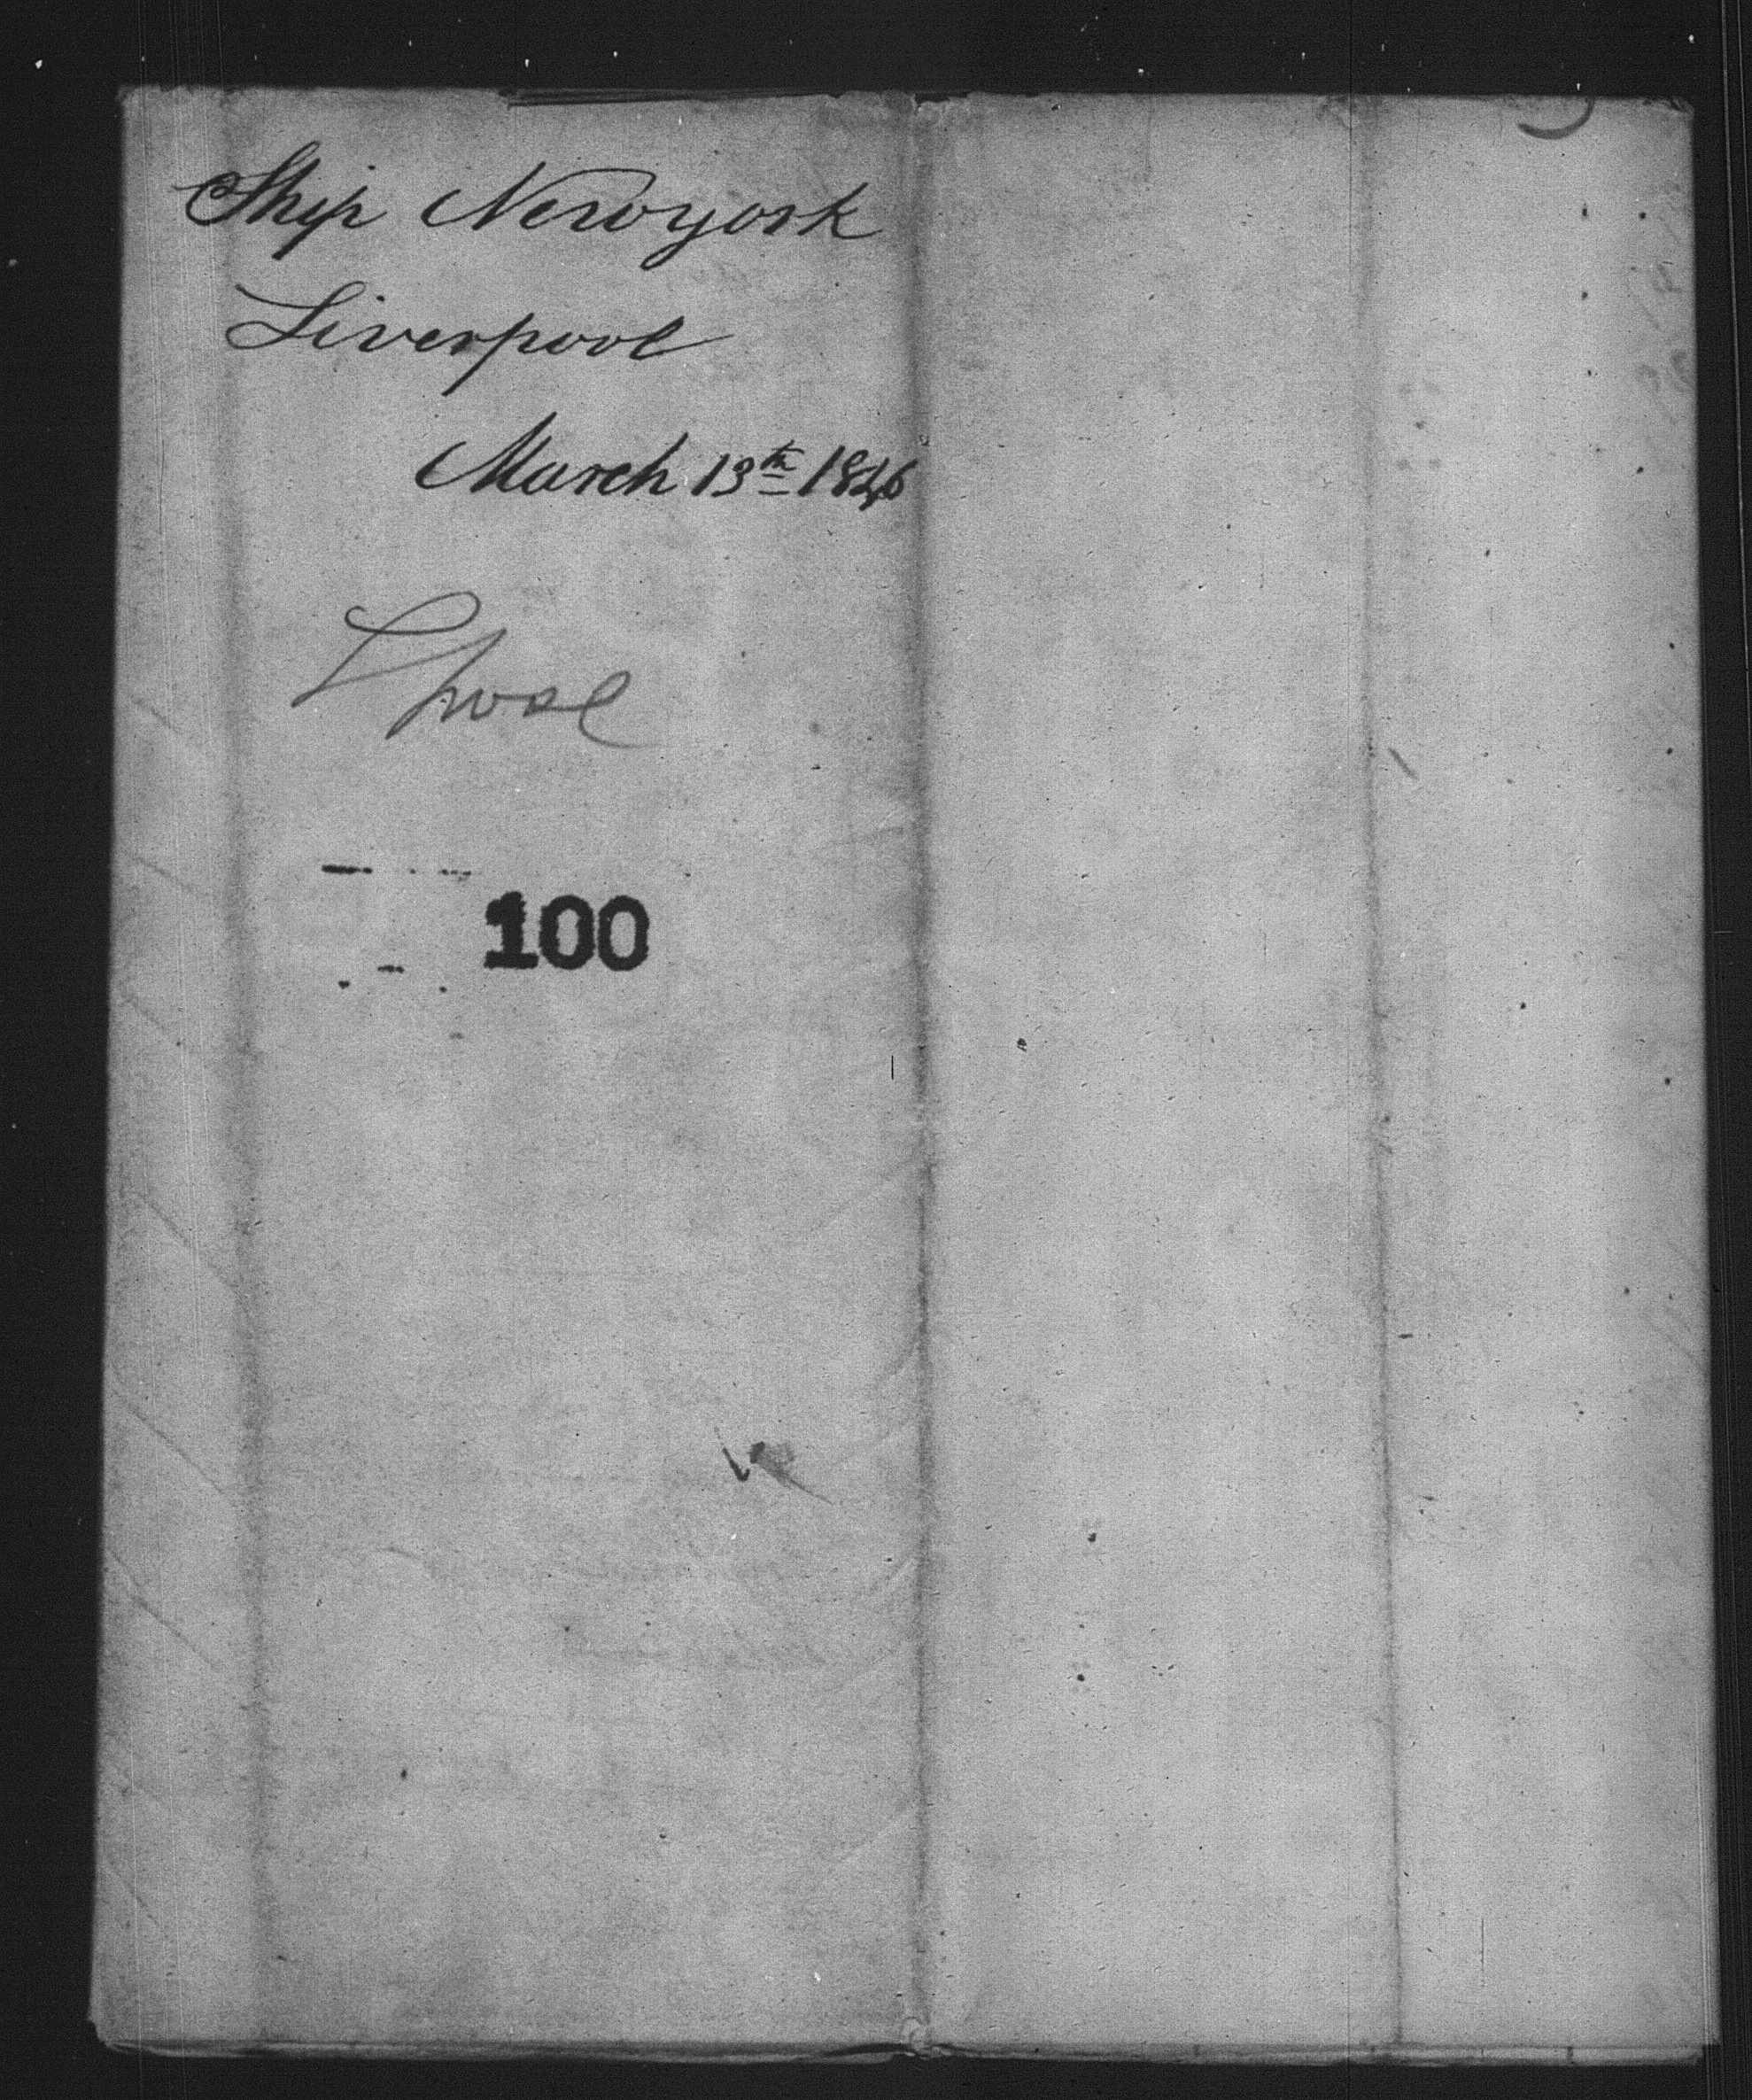 Ship Newyork
Liverpool
March 13th 1846
Lpool
100